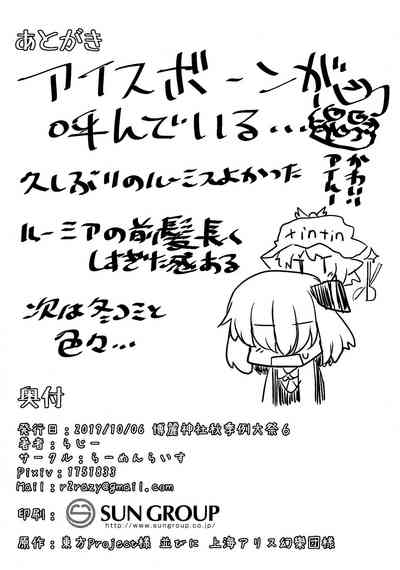 あとがき
アイスボーンが
呼んでいる…
かわいい
アイルー
久しぶりのルーミスよかった
ルーミアの前髪長く
しすぎた感ある
tintin
次は冬コミと
色々…
奥付
発行日：2019/10/06 博麗神社秋季例大祭6
著者：らじー
サークル：らーめんらいす
Pixiv：1751833
Mail：r2razy@gmail.com
印刷：
SUN GROUP
http://www.sungroup.co.jp/
原作：東方Project様 並びに 上海アリス幻樂団様